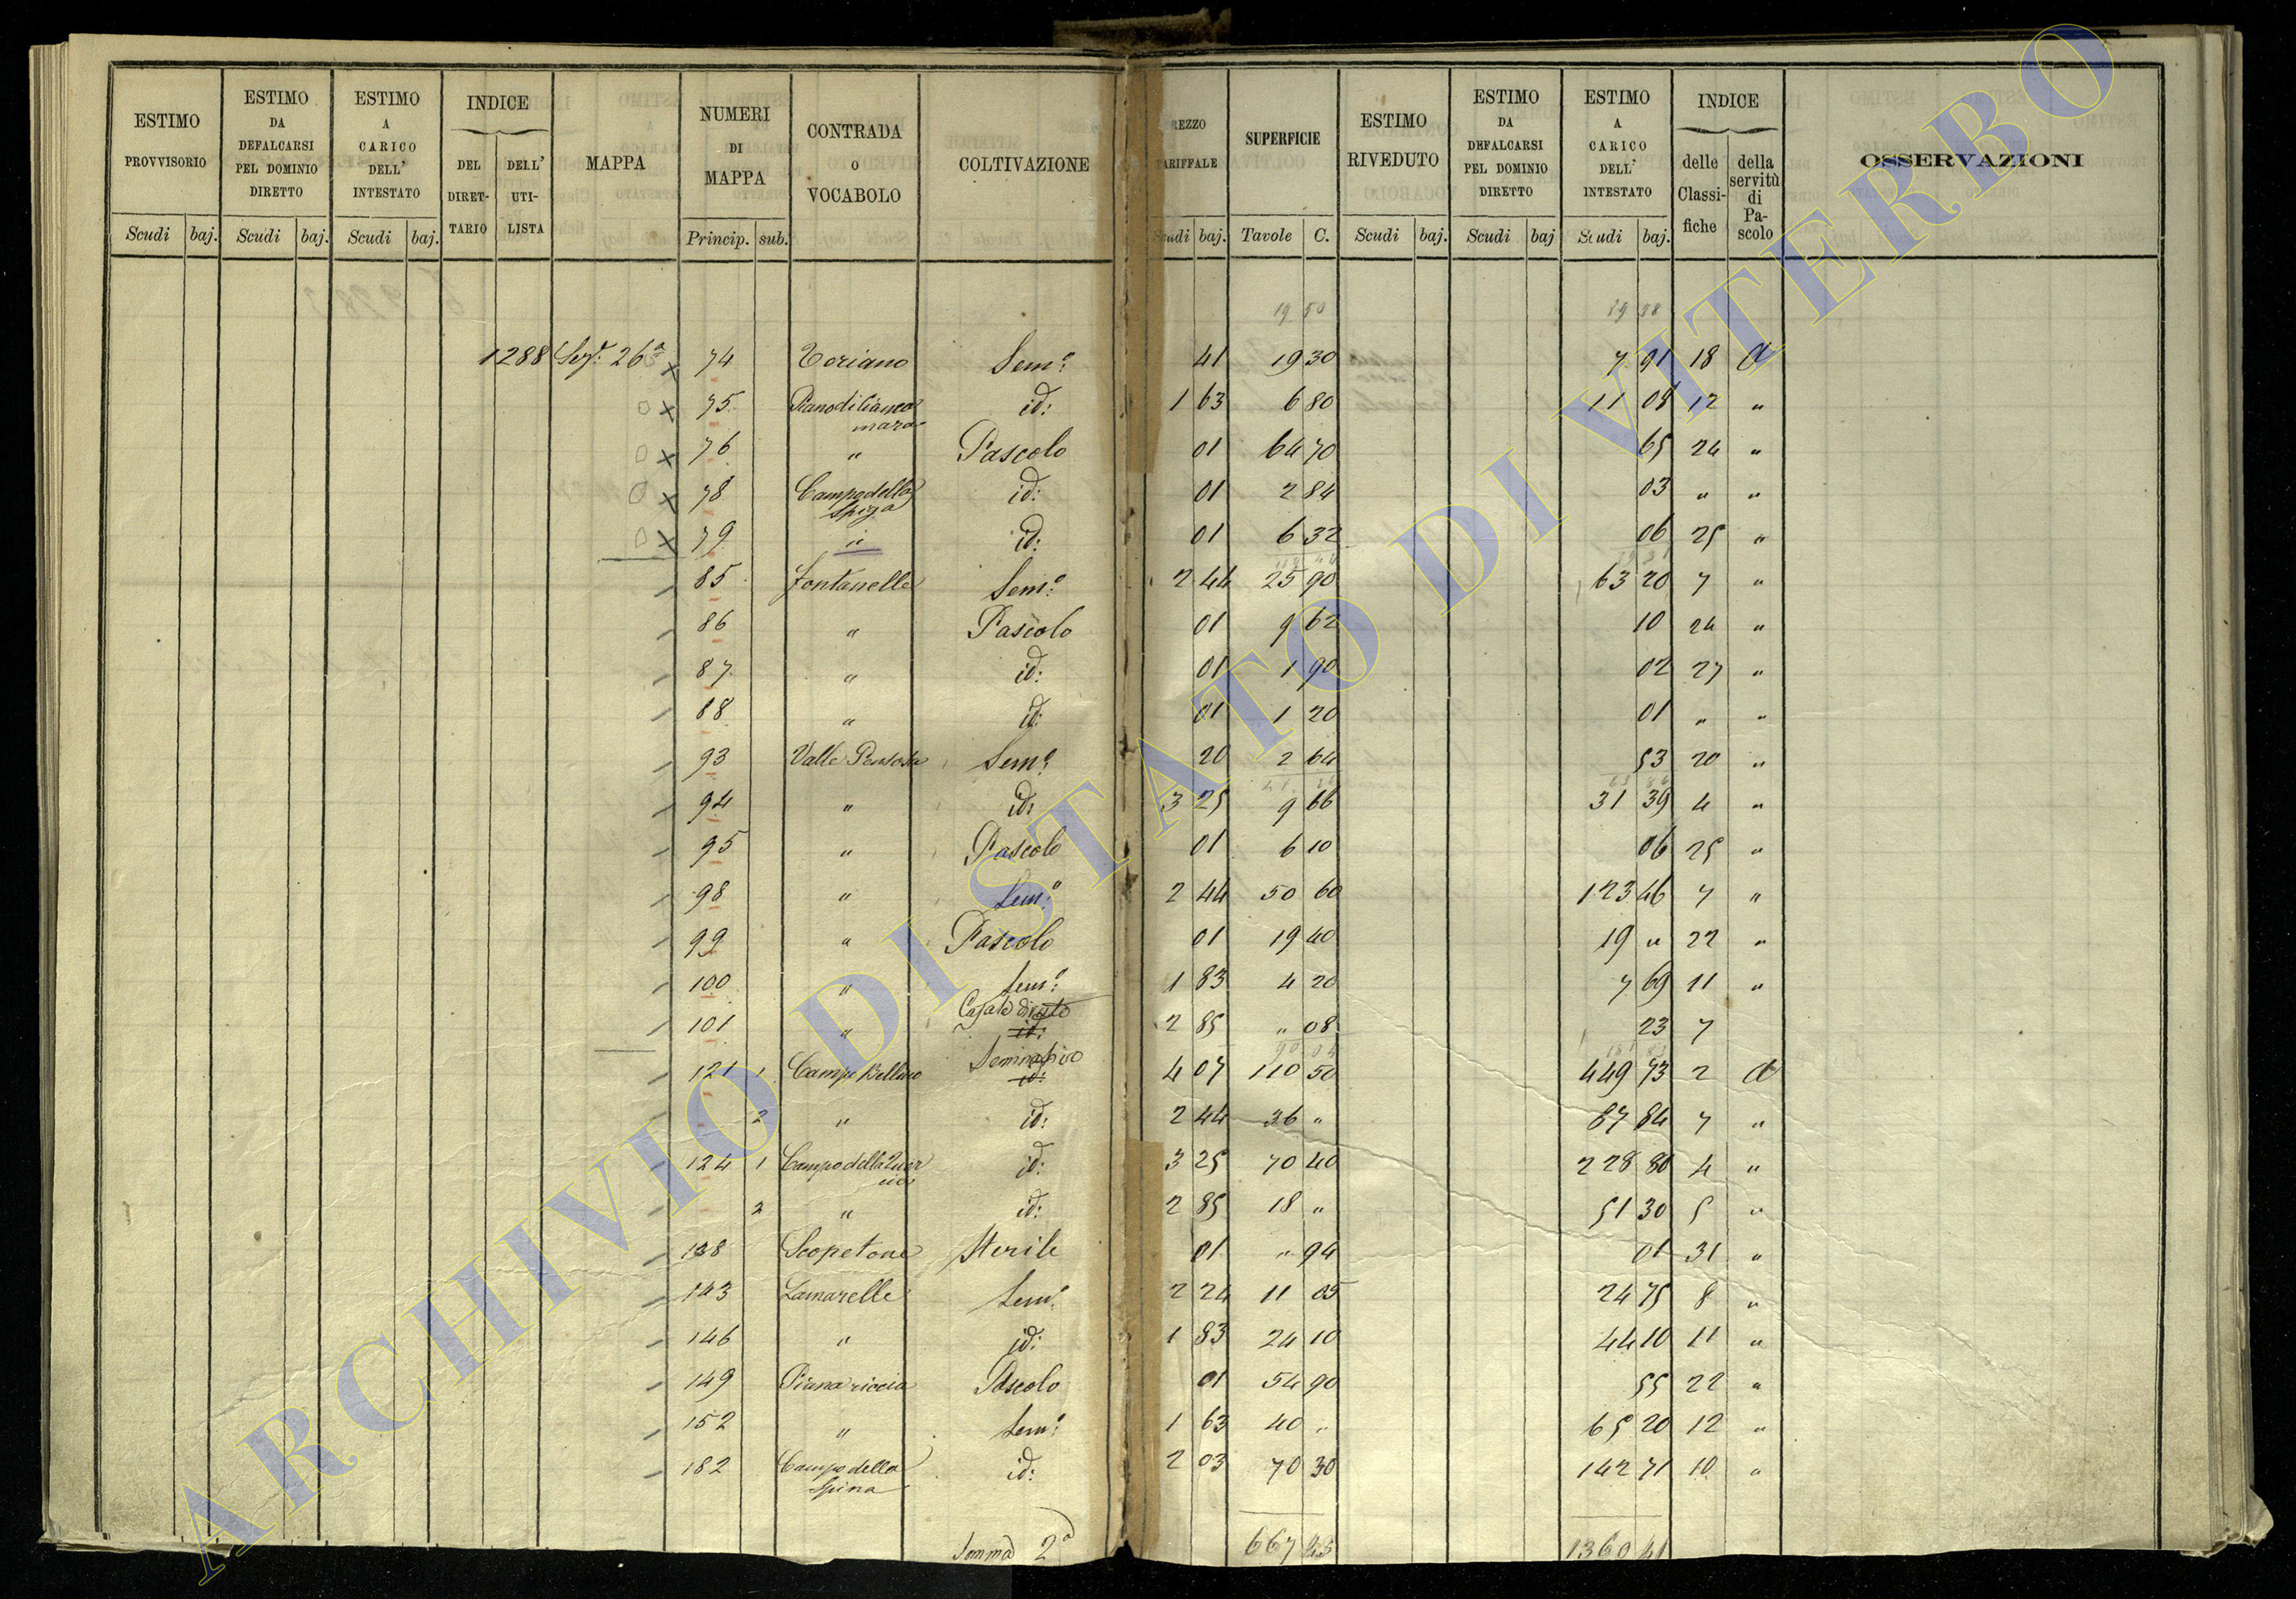 ESTIMO PROVVISORIO
ESTIMO DA DEFALCARSI PEL DOMINIO DIRETTO
ESTIMO A CARICO DELL' INTESTATO
INDICE
DEL DIRET-TARIO
DELL' UTI-LISTA
MAPPA
NUMERI DI MAPPA
CONTRADA O VOCABOLO
COLTIVAZIONE
REZZO ARIFFALE
SUPERFICIE
ESTIMO RIVEDUTO
ESTIMO DA DEFALCARSI PEL DOMINIO DIRETTO
ESTIMO A CARICO DELL' INTESTATO
INDICE
delle Classi-fiche
della servitù di Pa-scolo
OSSERVAZIONI
Scudi baj. Scudi baj. Scudi baj. Princip. sub. Scudi baj. Tavole C. Scudi baj. Scudi baj Scudi baj.
19 50
1288 Sez. 26ª x 74 Toriano Sem.º 41 19 30 7 91 18 a
x 75 Piano di Cianco mara id: 1 63 6 80 11 08 12 "
x 76 " Pascolo 01 64 70 65 24 "
x 78 Campo della Spiga id: 01 2 84 03 " "
x 79 " id: 01 6 32 06 25 "
85 Fontanelle Sem.º 2 44 25 90 63 20 7 "
86 " Pascolo 01 9 62 10 24 "
87 " id: 01 1 90 02 27 "
88 " id: 01 1 20 01 " "
93 Valle Pensosa Sem.º 20 2 64 53 20 "
94 " id: 3 25 9 66 31 39 4 "
95 " Pascolo 01 6 10 06 25 "
98 " Sem.º 2 44 50 60 123 46 7 "
99 " Pascolo 01 19 40 19 " 22 "
100 " Sem.º 1 83 4 20 7 69 11 "
101 " Casale diruto id: 2 85 " 08 23 7
121 1 Campo Bellino Seminativo id: 4 07 110 50 449 73 2 a
2 " id: 2 44 36 " 87 84 7 "
124 1 Campo della Quer cia id: 3 25 70 40 228 80 4 "
2 " id: 2 85 18 " 51 30 5 "
138 Scopetone Sterile 01 " 94 01 31 "
143 Lamarelle Sem.º 2 24 11 05 24 75 8 "
146 " id: 1 83 24 10 44 10 11 "
149 Piana riccia Pascolo 01 54 90 55 22 "
152 " Sem.º 1 63 40 " 65 20 12 "
182 Campo della Spina id: 2 03 70 30 142 71 10 "
Somma 2ª 667 45 1360 41
ARCHIVIO DI STATO DI VITERBO